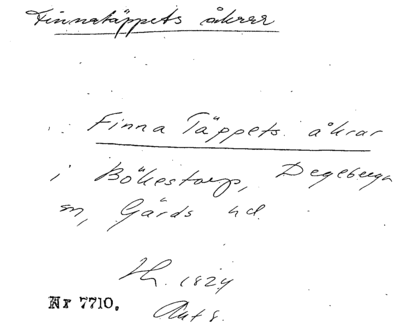 Finnatäppets åkrar
Finna Täppets åkrar
i Bökestorp, Degeberga
sn, Gärds hd.
1824
Akt 8.
Nr 7710.